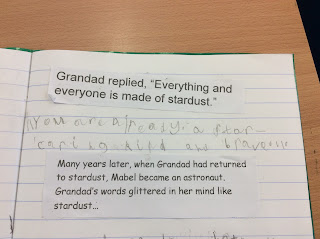 Grandad replied, “Everything and
everyone is made of stardust.”
You are already a star
Many years later, when Grandad had returned
to stardust, Mabel became an astronaut.
Grandad's words glittered in her mind like
stardust...